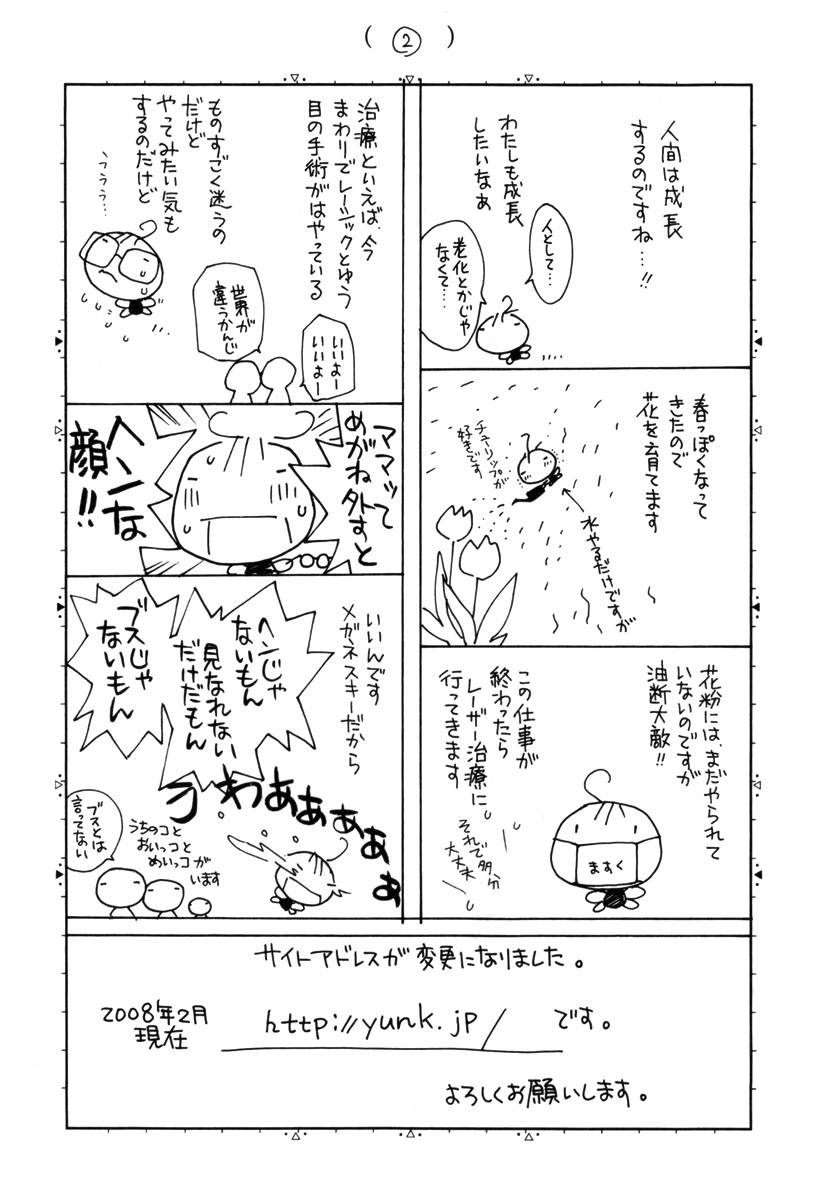 ( ② )
人間は成長
するのですね…!!
わたしも成長
したいなぁ
人として…
老化とかじゃ
なくて…
春っぽくなって
きたので
花を育てます
水やるだけですが
チューリップが
好きです
花粉には、まだやられて
いないのですが
油断大敵!!
この仕事が
終わったら
レーザー治療に
行ってきます
それで多分
大丈夫
ますく
治療といえば、今
まわりでレーシックとゆう
目の手術がはやっている
いいよー
いいよー
世界が
違うかんじ
ものすごく迷うの
だけど
やってみたい気も
するのだけど
ううう…
ママッて
めがね外すと
ヘンな
顔!!
いいんです
メガネスキーだから
ヘンじゃ
ないもん
見なれない
だけだもん
ブスじゃ
ないもん
うわぁぁぁぁぁぁ
うちのコと
おいっコと
めいっコが
います
ブスとは
言ってない
サイトアドレスが変更になりました。
2008年2月
現在
http://yunk.jp/
です。
よろしくお願いします。